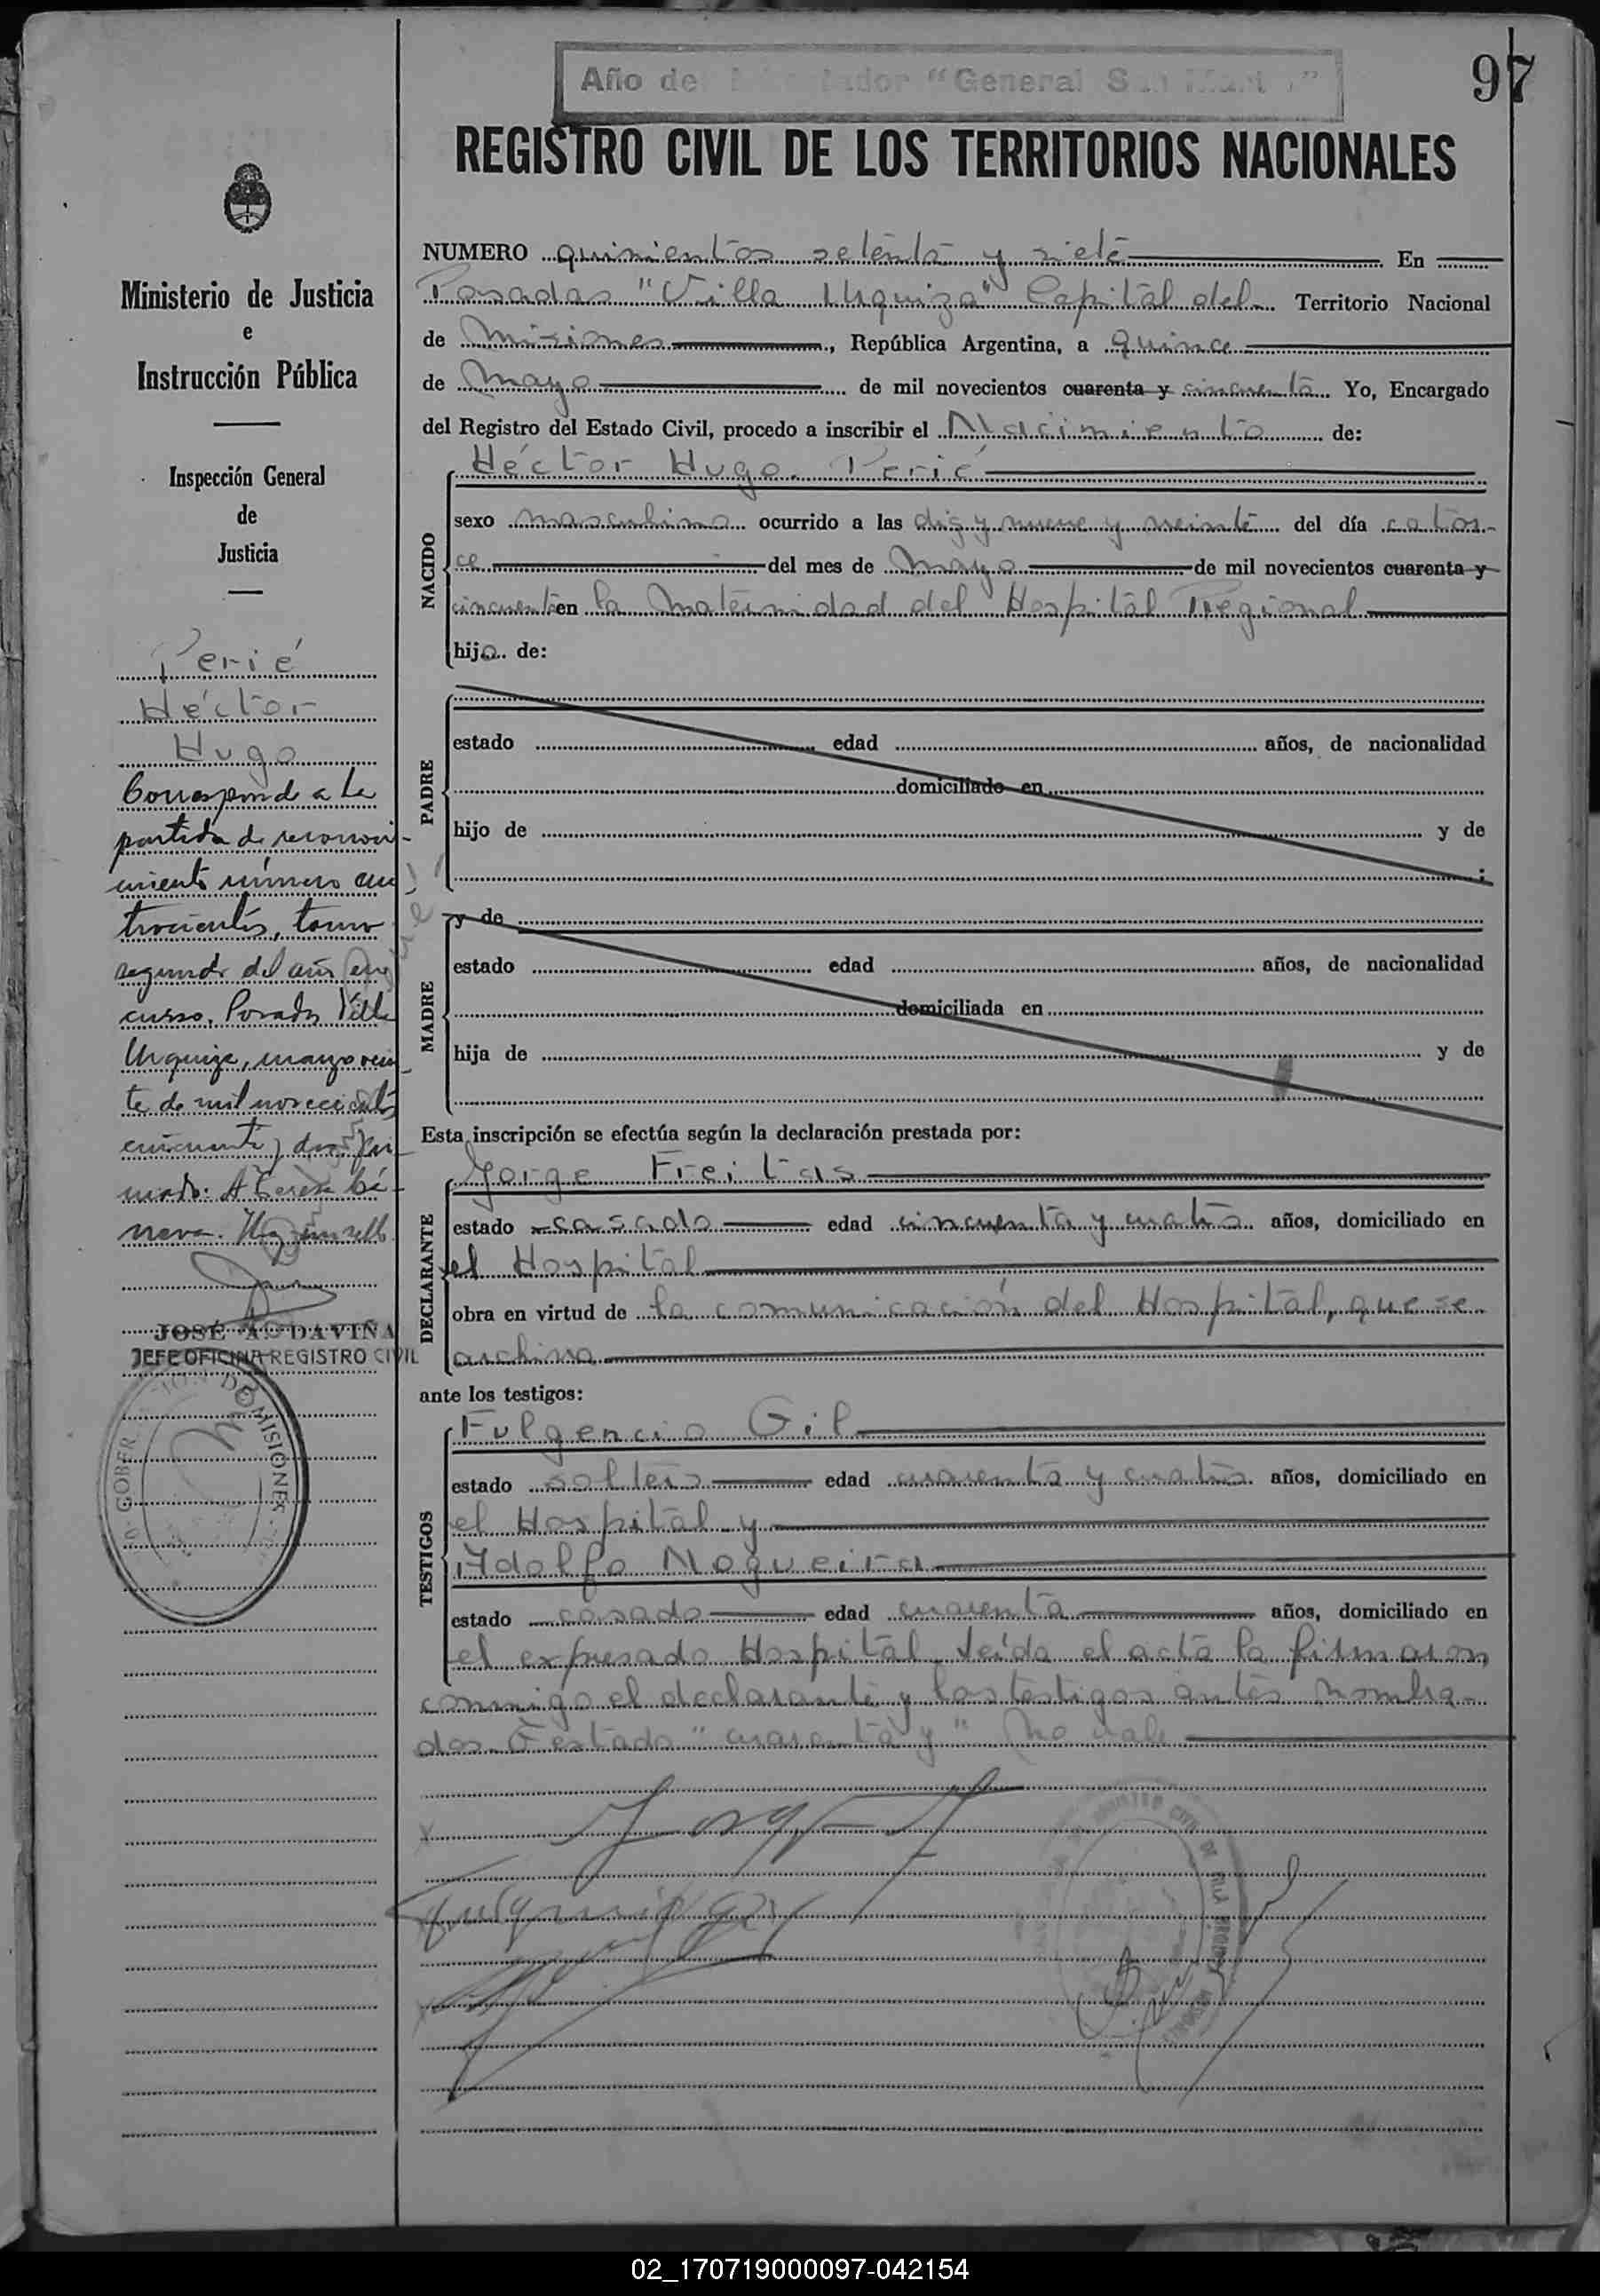 Año del Libertador "General San Martín"
97
REGISTRO CIVIL DE LOS TERRITORIOS NACIONALES
Ministerio de Justicia
e
Instrucción Pública
Inspección General
de
Justicia
Perié
Héctor
Hugo
Corresponde a la
partida de reconoci-
miento número cua
trocientos, tomo
segundo del año en
curso. Posadas Villa
Urquiza, marzo vein
te de mil novecientos
cincuenta y dos. Fir-
mado: A Teresa Cá-
neva.
JOSÉ A. DAVIÑA
JEFE OFICINA REGISTRO CIVIL
GOBER MISIONES
NUMERO quinientos setenta y siete En
Posadas "Villa Urquiza" Capital del Territorio Nacional
de Misiones, República Argentina, a quince
de Mayo de mil novecientos cuarenta y cincuenta Yo, Encargado
del Registro del Estado Civil, procedo a inscribir el Nacimiento de:
NACIDO
Héctor Hugo Perié
sexo masculino ocurrido a las diez y nueve y veinte del día cator-
ce del mes de Mayo de mil novecientos cuarenta y
cincuenta en la Maternidad del Hospital Regional
hijo de:
PADRE
estado edad años, de nacionalidad
domiciliado en
hijo de y de
;
MADRE
y de
estado edad años, de nacionalidad
domiciliada en
hija de y de
Esta inscripción se efectúa según la declaración prestada por:
DECLARANTE
Jorge Freitas
estado casado edad cincuenta y cuatro años, domiciliado en
el Hospital
obra en virtud de la comunicación del Hospital, que se
archiva
ante los testigos:
TESTIGOS
Fulgencio Gil
estado soltero edad cuarenta y cuatro años, domiciliado en
el Hospital y
Adolfo Nogueira
estado casado edad cuarenta años, domiciliado en
el expresado Hospital. Leída el acta la firmaron
conmigo el declarante y los testigos antes nombra-
dos. Testado "cuarenta y" No vale
02_170719000097-042154